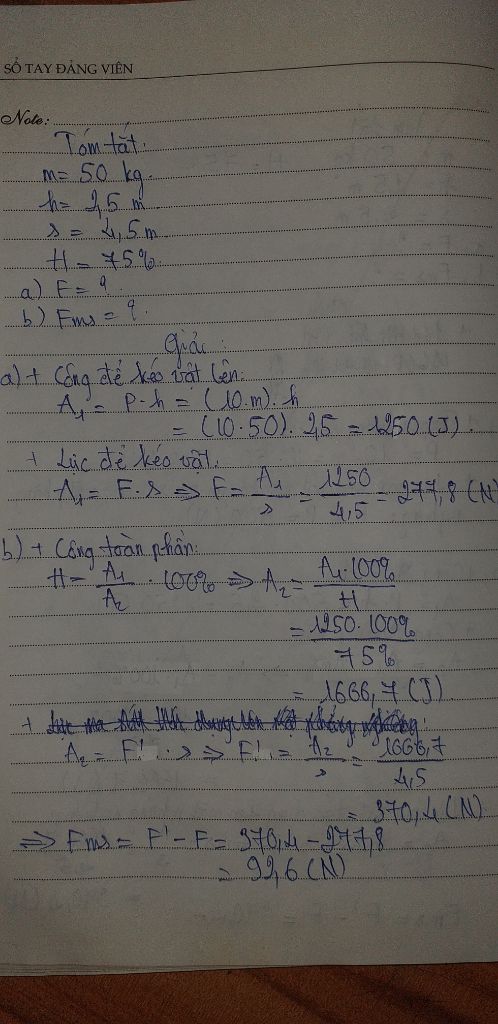 SỔ TAY ĐẢNG VIÊN
Note:
Tóm tắt:
m = 50 kg.
h = 2,5 m
s = 4,5 m
H = 75%.
a) F = ?
b) Fms = ?
Giải:
a) + Công để kéo vật lên:
A₁ = P.h = (10.m).h
= (10.50).2,5 = 1250 (J).
+ Lực để kéo vật:
A₁ = F.s => F = A₁/s = 1250/4,5 = 277,8 (N
b) + Công toàn phần:
H = A₁/A₂ . 100% => A₂ = A₁.100%/H
= 1250.100%/75%
= 1666,7 (J)
+
A₂ = F'.s => F' = A₂/s = 1666,7/4,5
= 370,4 (N)
=> Fms = F' - F = 370,4 - 277,8
= 92,6 (N)